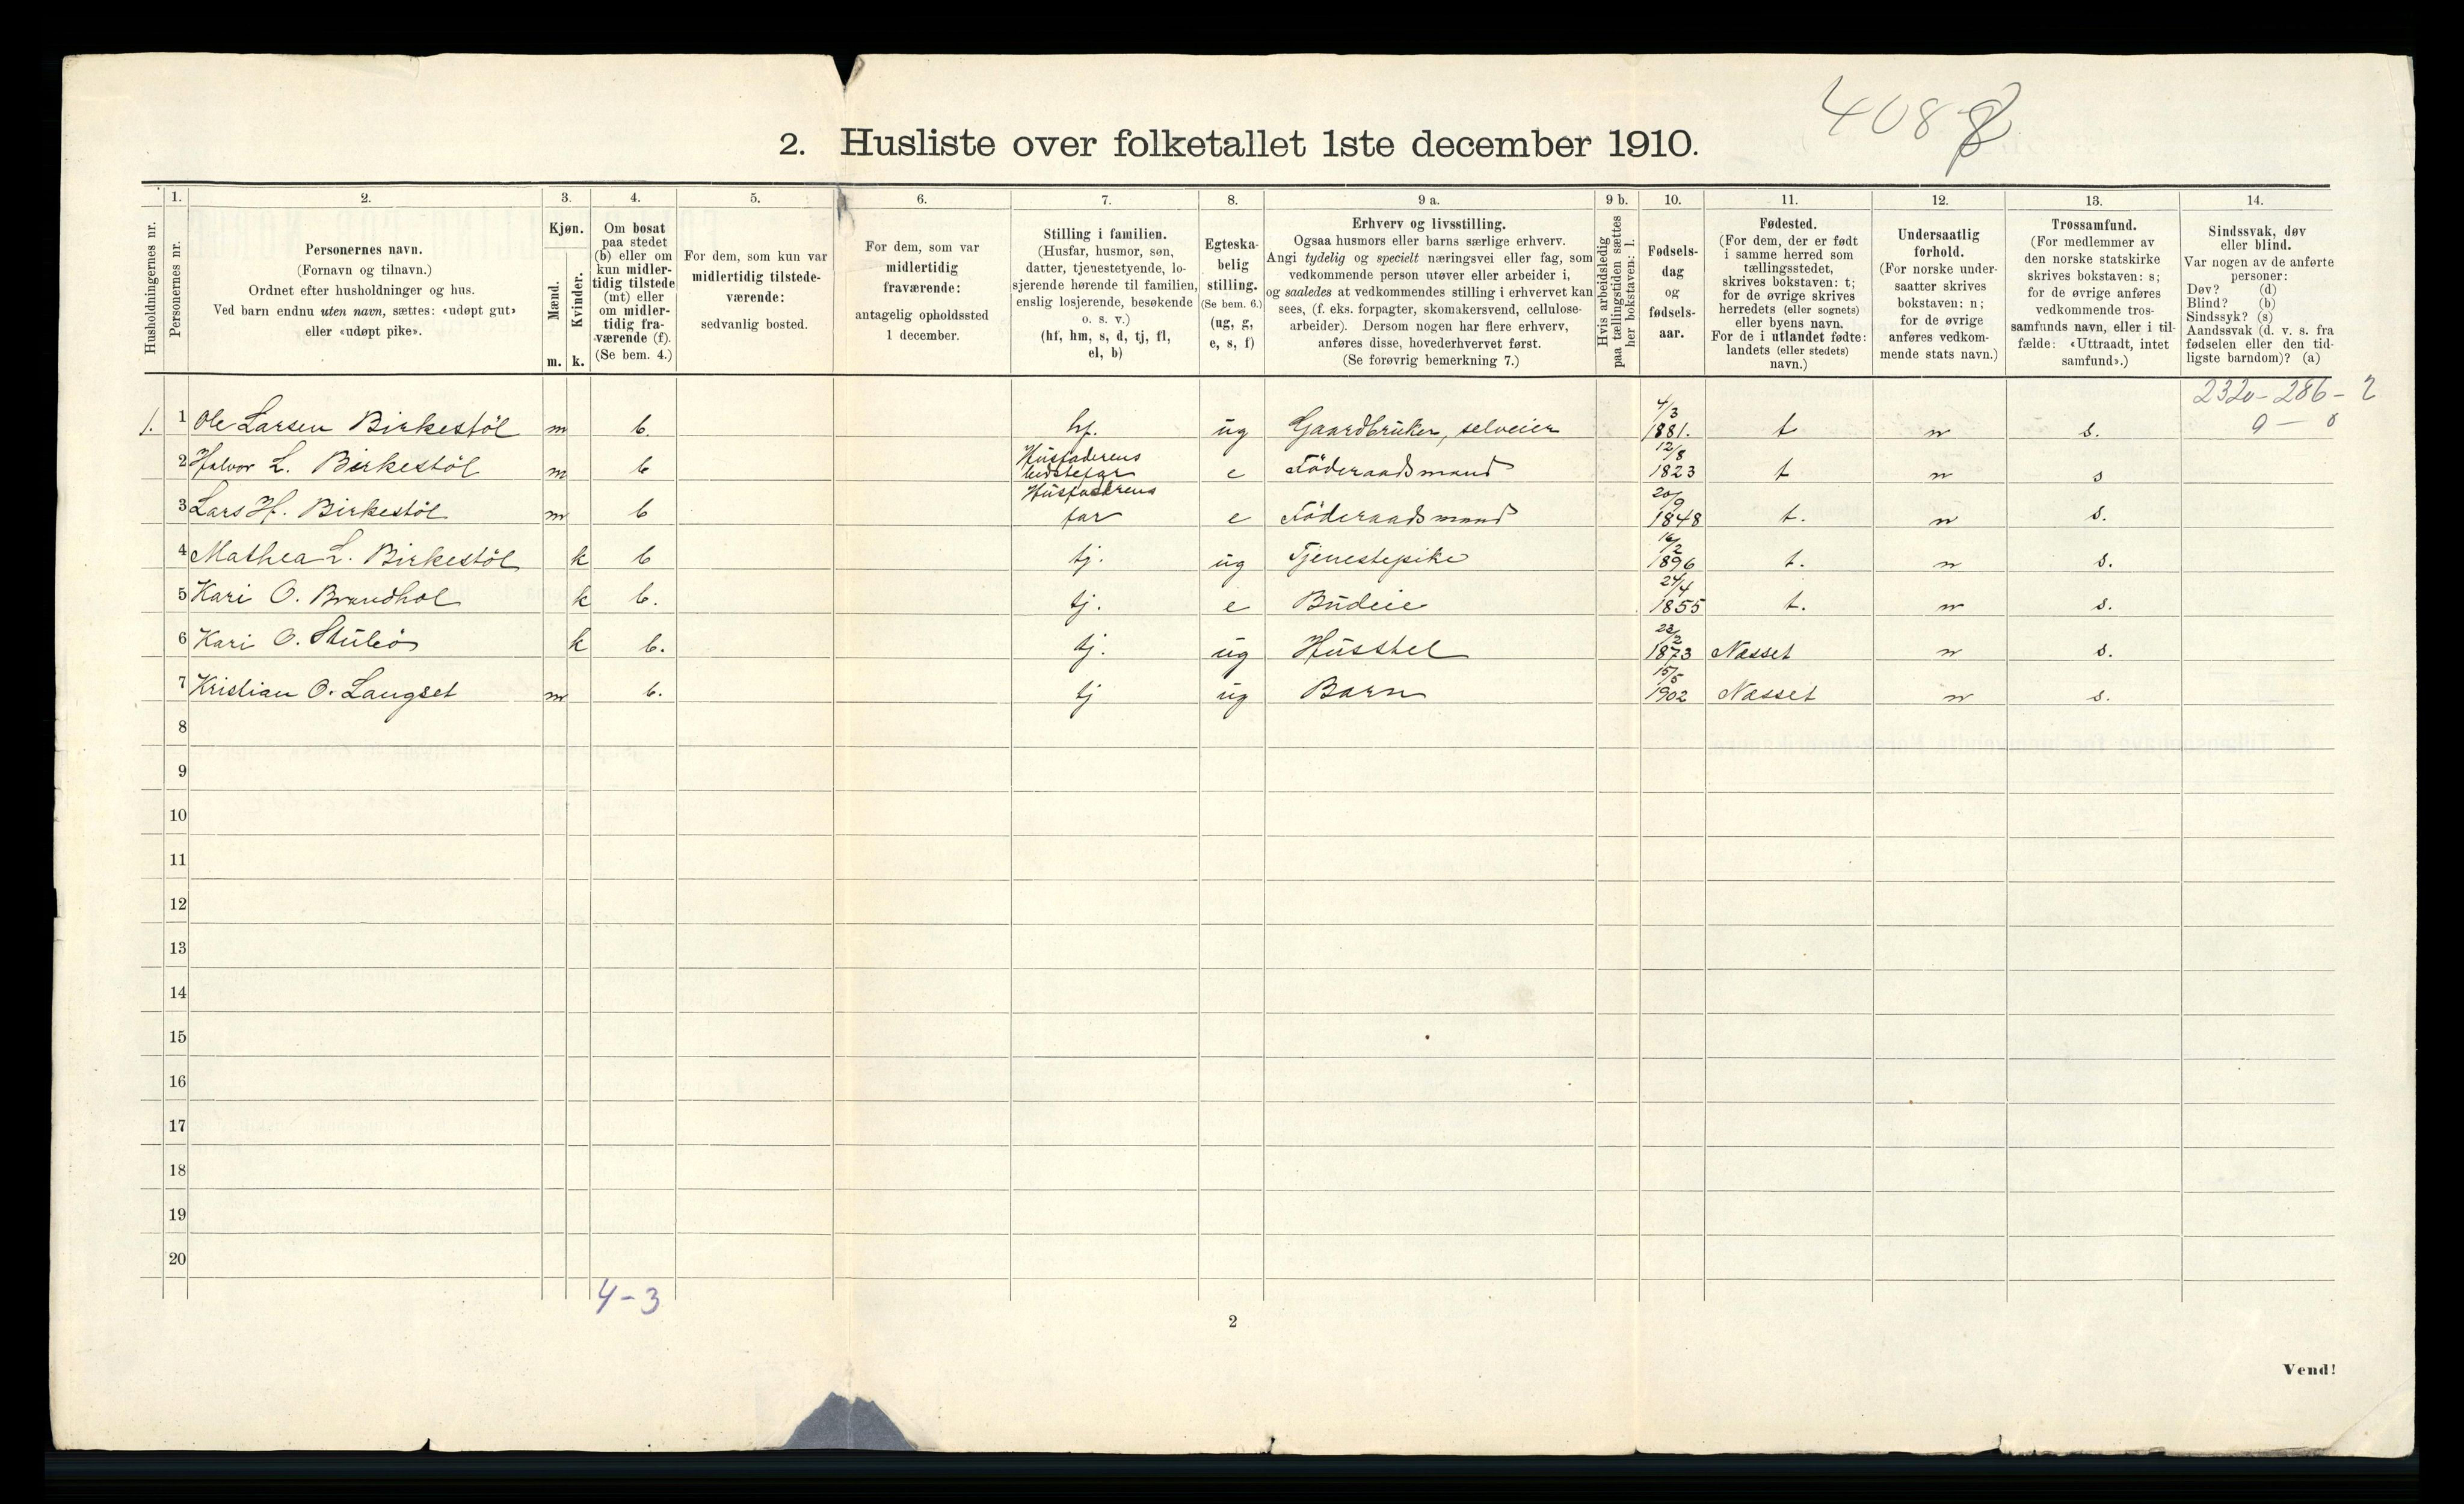 408 8
2. Husliste over folketallet 1ste december 1910.
Husholdningernes nr.
1. Personernes nr.
2. Personernes navn. (Fornavn og tilnavn.) Ordnet efter husholdninger og hus. Ved barn endnu uten navn, sættes: «udøpt gut» eller «udøpt pike».
3. Kjøn. Mænd. m. Kvinder. k.
4. Om bosat paa stedet (b) eller om kun midlertidig tilstede (mt) eller om midlertidig fraværende (f). (Se bem. 4.)
5. For dem, som kun var midlertidig tilstedeværende: sedvanlig bosted.
6. For dem, som var midlertidig fraværende: antagelig opholdssted 1 december.
7. Stilling i familien. (Husfar, husmor, søn, datter, tjenestetyende, losjerende hørende til familien, enslig losjerende, besøkende o. s. v.) (hf, hm, s, d, tj, fl, el, b)
8. Egteskabelig stilling. (Se bem. 6.) (ug, g, e, s, f)
9 a. Erhverv og livsstilling. Ogsaa husmors eller barns særlige erhverv. Angi tydelig og specielt næringsvei eller fag, som vedkommende person utøver eller arbeider i, og saaledes at vedkommendes stilling i erhvervet kan sees, (f. eks. forpagter, skomakersvend, cellulosearbeider). Dersom nogen har flere erhverv, anføres disse, hovederhvervet først. (Se forøvrig bemerkning 7.)
9 b. Hvis arbeidsledig paa tællingstiden sættes her bokstaven: l.
10. Fødselsdag og fødselsaar.
11. Fødested. (For dem, der er født i samme herred som tællingsstedet, skrives bokstaven: t; for de øvrige skrives herredets (eller sognets) eller byens navn. For de i utlandet fødte: landets (eller stedets) navn.)
12. Undersaatlig forhold. (For norske undersaatter skrives bokstaven: n; for de øvrige anføres vedkommende stats navn.)
13. Trossamfund. (For medlemmer av den norske statskirke skrives bokstaven: s; for de øvrige anføres vedkommende trossamfunds navn, eller i tilfælde: «Uttraadt, intet samfund».)
14. Sindssvak, døv eller blind. Var nogen av de anførte personer: Døv? (d) Blind? (b) Sindssyk? (s) Aandssvak (d. v. s. fra fødselen eller den tidligste barndom)? (a)
2320-286-2
0 - 0
1. 1 Ole Larsen Birkestöl m b. hf. ug Gaardbruker, selveier 4/3 1881. t n s.
2 Halvor L. Birkestöl m b Husfaderens bedstefar e Föderaadsmand 12/8 1823 t n s
3 Lars H. Birkestöl m b Husfaderens far e Föderaadsmand 20/9 1848 t. n s.
4 Mathea L. Birkestöl k b tj. ug Tjenestepike 16/2 1896 t. n s.
5 Kari O. Brandhol k b. tj. e Budeie 24/4 1855 t. n s.
6 Kari O. Stubö k b. tj. ug Husstel 1873 Næsset n s.
7 Kristian O. Langset m b. tj ug Barn 15/5 1902 Næsset n s.
8
9
10
11
12
13
14
15
16
17
18
19
20
4-3
2
Vend!